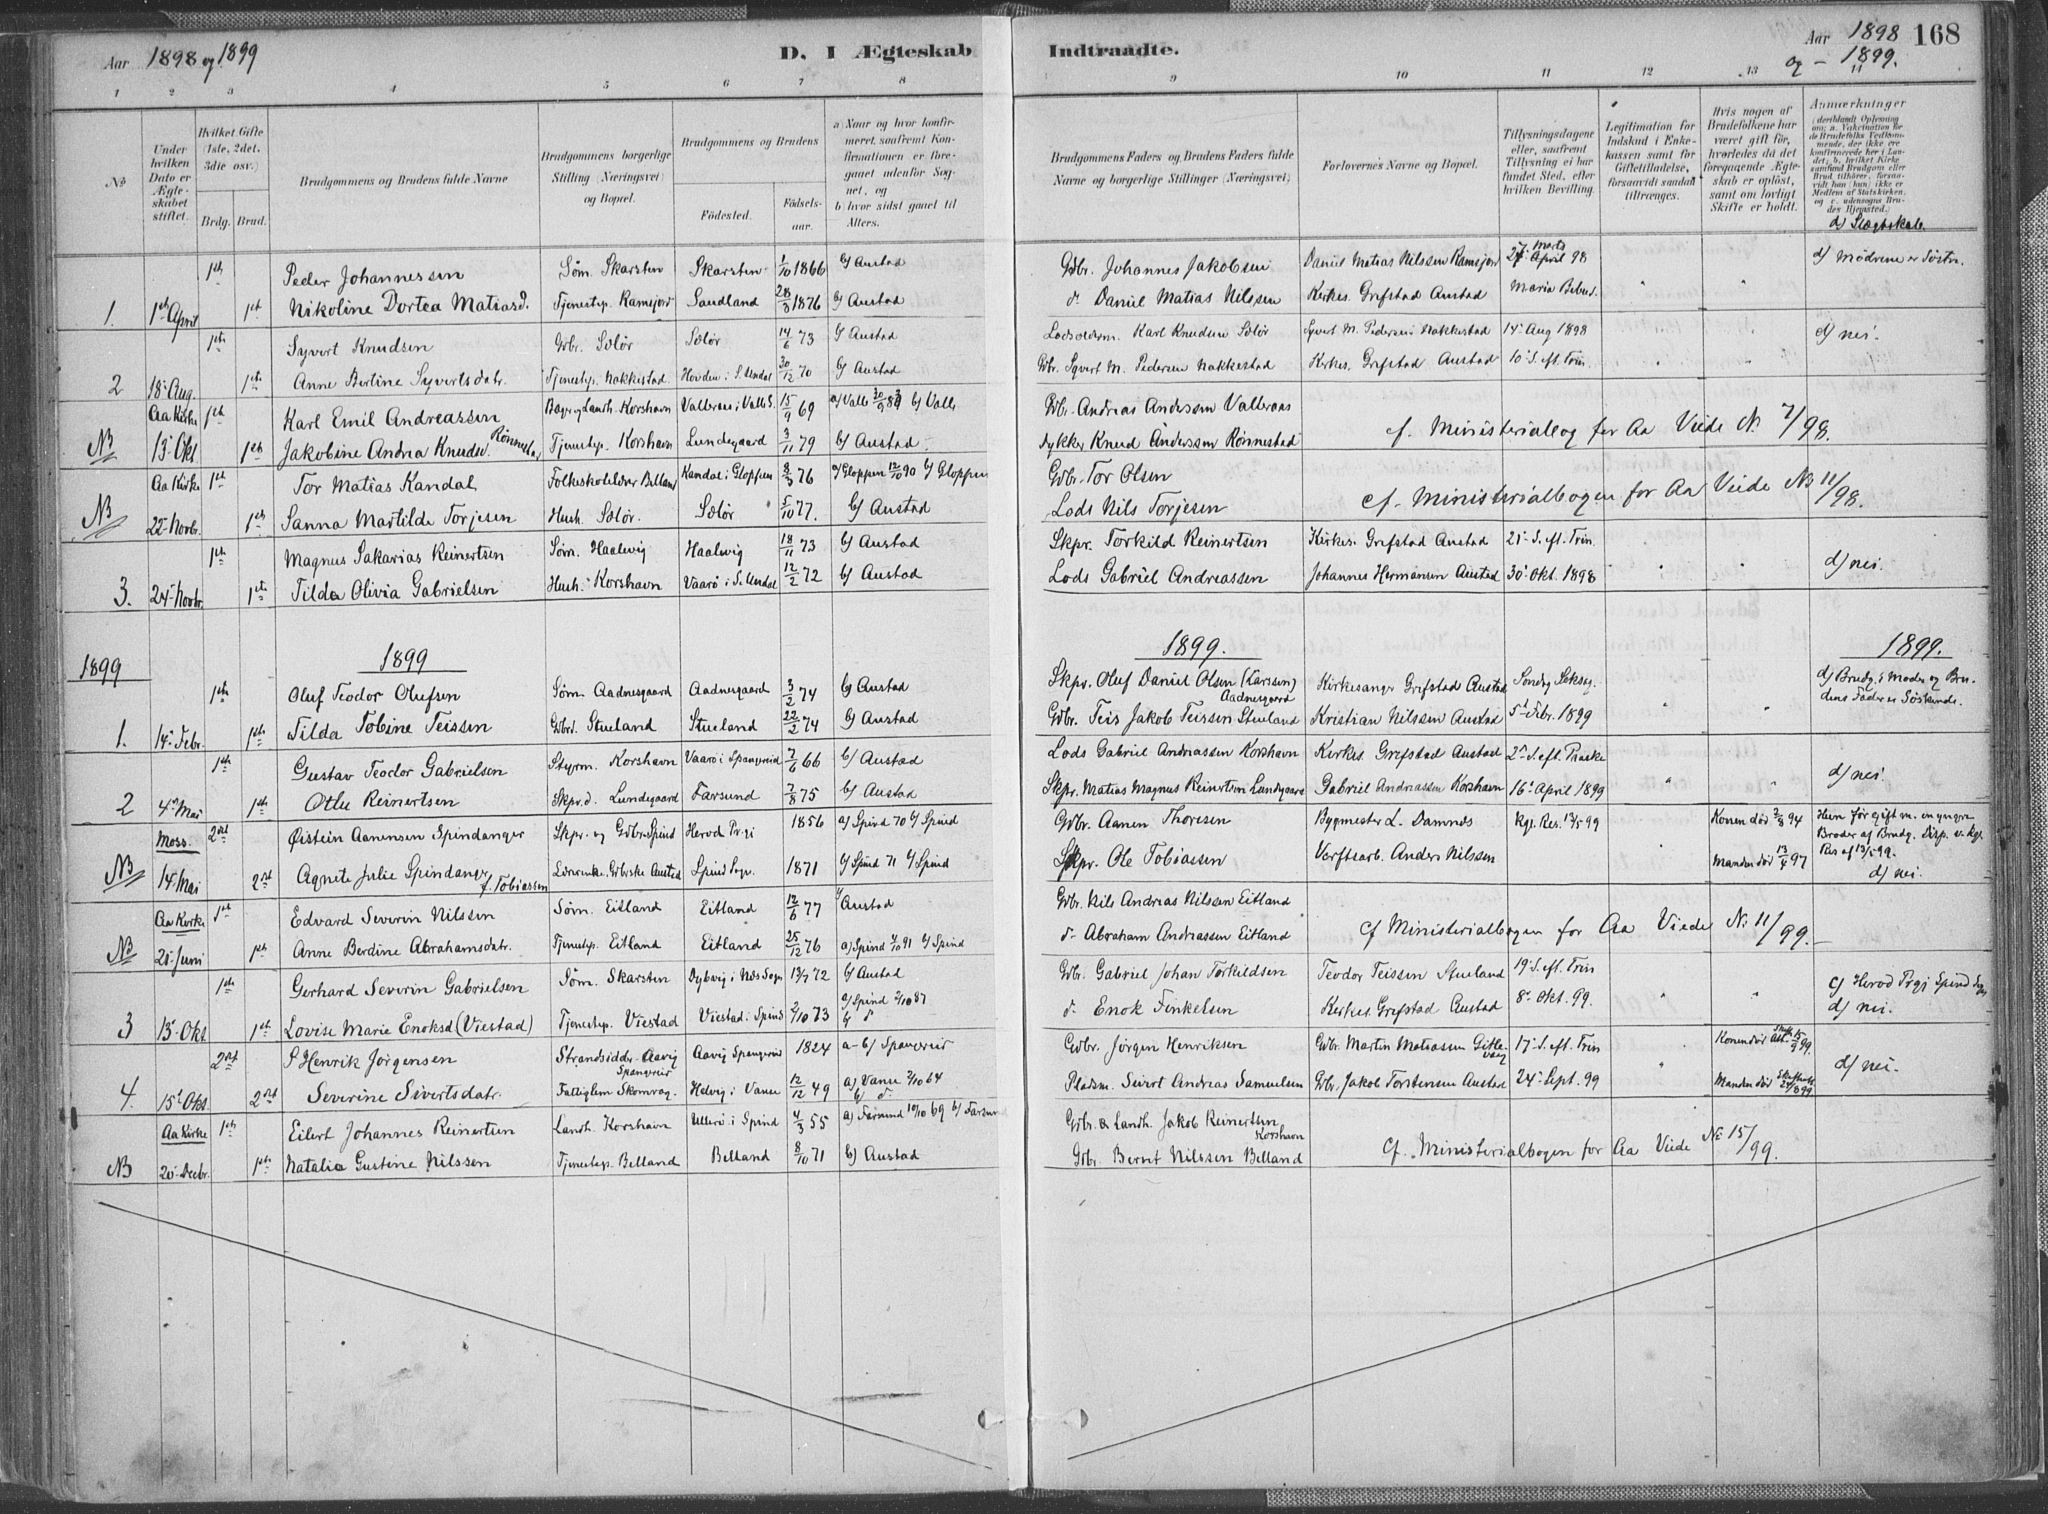 Aar 1898 og 1899
D. I Ægteskab
Indtraadte.
Aar 1898 og - 1899.
168
1 2 3 4 5 6 7 8 9 10 11 12 13 14
No
Under hvilken Dato er Ægteskabet stiftet.
Hvilket Gifte (1ste, 2det, 3die osv.)
Brdg. Brud.
Brudgommens og Brudens fulde Navne
Brudgommens borgerlige Stilling (Næringsvei) og Bopæl.
Brudgommens og Brudens
Födested.
Födselsaar.
a) Naar og hvor konfirmeret, saafremt Konfirmationen er foregaaet udenfor Sognet, og
b) hvor sidst gaaet til Alters.
Brudgommens Faders og Brudens Faders fulde Navne og borgerlige Stillinger (Næringsvei)
Forlovernes Navne og Bopæl.
Tillysningsdagene eller, saafremt Tillysning ei har fundet Sted, efter hvilken Bevilling.
Legitimation for Indskud i Enkekassen samt for Giftetilladelse, forsaavidt saadan tiltrænges.
Hvis nogen af Brudefolkene har været gift før, hvorledes da det foregaaende Ægteskab er oplöst, samt om lovligt Skifte er holdt.
Anmærkninger
d) Slægtskab
1ste Peder Johannessen Söm. Skarsten Skarsten 1/10 1866 b/ Austad Gdbr. Johannes Jakobsen Daniel Matias Nilssen Ramsjord 27 Marts April 98 d) Mödrene er Söstre.
1. 1ste April 1ste Nikoline Dortea Matiasd. Tjenestep. Ramsjord Sandland 28/3 1876 b/ Austad d. Daniel Matias Nilssen Kirkes. Grefstad Austad Maria Bebud.
1ste Syvert Knudsen Gdbr. Sælør Sælør 14/6 73 b/ Austad Lodsoldem. Karl Knudsen Sælör Syvert M. Pedersen Nakkestad 14. Aug 1898 d) nei.
2 18. Aug. 1ste Anne Bertine Syvertsdatr. Tjenestep. Nakkestad. Hovden i S. Undal 30/12 70 b/ Austad Gdbr. Syvert M. Pedersen Nakkestad Kirkes. Grefstad Austad 10. S. eft. Trin.
Aa Kirke 1ste Karl Emil Andreassen Bager og Landh. Korshavn Valleraas i Valle S. 15/9 69 a) Valle b/ Valle Gdbr. Andreas Anderssen Valleraas
NB 13. Okt. 1ste Jakobine Andrea Knudsd. Rönnestad Tjenestep. Korshavn Lundegaard 3/11 79 b/ Austad dykker Knud Anderssen Rönnestad cf. Ministerialbog for Aa Viede No. 7/98.
Aa Kirke 1ste Tor Matias Kandal Folkeskolelærer Belland Kandal i Gloppen 8/3 76 a/ Gloppen 12/10 90 b/ Gloppen Gdbr. Tor Olsen
NB 22. Novbr. 1ste Sanna Martilde Torjesen Hush. Sælör. Sælör 5/10 77. b/ Austad Lods Nils Torjesen cf. Ministerialbogen for Aa Viede No 11/98.
1ste Magnus Sakarias Reinertsen Söm. Haalvig Haalvig 18/11 73 b/ Austad Skpr. Torkild Reinertsen Kirkes. Grefstad Austad 21. S. eft. Trin.
3. 24. Novbr. 1ste Tilda Olivia Gabrielsen Hush. Korshavn Vaarö i S. Undal 12/2 72 b/ Austad Lods Gabriel Andreassen Johannes Hermansen Austad 30. Okt. 1898 d) nei.
1899 1899 1899. 1899.
1ste Oluf Teodor Olufsen Söm. Aadnesgaard Aadnesgaard 3/2 74 b/ Austad Skpr. Oluf Daniel Olsen (Larssen) Aadnesgaard Kirkesanger Grefstad Austad Sönd. Seksag. d) Brudg.s Moder og Brudens Fader er Söskende.
1. 14. Febr. 1ste Tilda Tobine Teissen Gdbrd. Stueland Stueland 22/2 74 b/ Austad Gdbr. Teis Jakob Teissen Stueland Kristian Nilssen Austad 5. Febr. 1899
1ste Gustav Teodor Gabrielsen Styrm. Korshavn Vaarö i Spangereid 7/6 66 b/ Austad Lods Gabriel Andreassen Korshavn Kirkes. Grefstad Austad 2. S. eft. Paaske
2 4. Mai 1ste Otlu Reinertsen Skpr.d. Lundegaard Farsund 7/8 75 b/ Austad Skpr. Matias Magnus Reinertsen Lundegaard Gabriel Andreassen Korshavn 16. April 1899 d) nei.
Moss. 2det Øistein Aanensen Spindanger Skpr. og Gdbr. Spind Herod Prgj 1856 a/ Spind 70 b/ Spind Gdbr. Aanen Thoresen Bygmester L. Damnes kgl. Res. 13/5 99 Konen död 3/8 94 Hun för gift m. en yngre Broder af Brudg. Disp. v. kgl. Res af 13/5 99.
NB 14. Mai 2det Agnete Julie Spindanger f. Tobiassen Gdbrske Austad Spind Sogn. 1871 a/ Spind 71 b/ Spind Skpr. Ole Tobiassen Verftsarb. Anders Nilssen Manden död 97 d) nei.
Aa Kirke 1ste Edvard Severin Nilssen Söm. Eitland Eitland 12/6 77 b/ Austad Gdbr. Nils Andreas Nilssen Eitland
NB 21. Juni 1ste Anne Berdine Abrahamsdatr. Tjenestep. Eitland Eitland 25/12 76 a) Spind 91 b/ Spind d. Abraham Andreassen Eitland cf Ministerialbogen for Aa Viede No. 11/99.
1ste Gerhard Severin Gabrielsen Söm. Skarsten Dybvig i Næs Sogn 13/7 72 b/ Austad Gdbr. Gabriel Johan Torkildsen Teodor Teissen Stueland 19. S. eft. Trin c/ Herod Prgj Spind Sogn
3 13. Okt. 1ste Lovise Marie Enoksd (Viestad) Tjenestep. Viestad Viestad i Spind 2/10 73 a/ Spind 2/10 87 b/ d. d. Enok Finkelsen Kirkes. Grefstad Austad 8. Okt. 99. d) nei.
2det S Henrik Jörgensen Strandsidder Aavig Spangereid Aavig Spangereid 1824 a- b/ Spangereid Gdbr. Jörgen Henriksen Gdbr. Martin Matiassen Gitlevaag 17. S. eft. Trin Konen död 99.
4. 15. Okt. 2det Severine Sivertsdatr. Fattiglem Skomvag. Helvig i Vanse 12/12 49 a) Vanse 2/10 64 b/ d. Pladsm. Sivert Andreas Samuelsen Gdbr. Jakob Torstensen Austad 24. Sept. 99 Manden död d) nei.
Aa Kirke 1ste Eilert Johannes Reinertsen Landh. Korshavn Ullerö i Spind 4/3 55 a) Farsund 10/10 69 b/ Farsund Gdbr. & Landh. Jakob Reinertsen Korshavn
NB 20. Decbr. 1ste Natalia Gustine Nilssen Tjenestep. Belland Belland 8/10 71 b/ Austad Gdbr. Bernt Nilssen Belland cf. Ministerialbogen for Aa Viede No. 15/99.